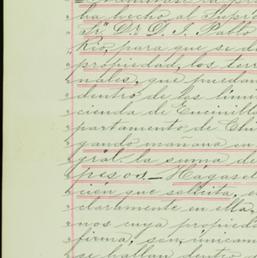 ha hecho al Supre
Sr. Dr. D. J. Pablo
Rio, para que se d
propiedad, los terr
nales, que puedan
dentro de los lími
cienda de Encinilla
partamento de Chi
gando mañana en
gral. la suma de
pesos_Hágase
cien que solicita, e
claramente en ella,
nos cuya propied
firma, son únicam
se hallan dentro d